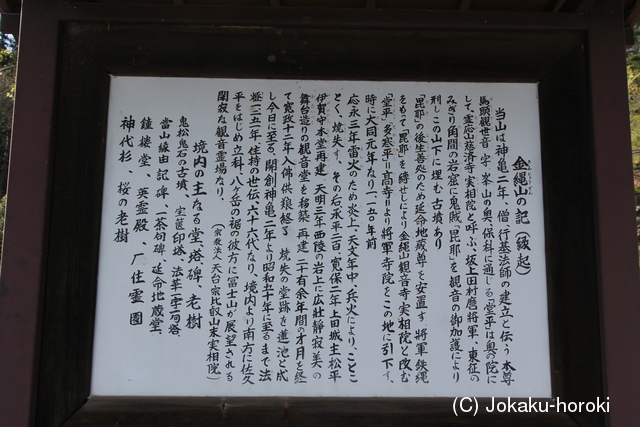 金縄山の記(縁起)
当山は神亀二年、僧行基法師の建立と伝う 本尊
馬頭観世音 守 峯山の奥、保科に通じる「堂平」は奥の院に
して、霊応山慈済寺実相院と呼ぶ、坂上田村麿将軍、東征の
みぎり角間の岩窟に鬼賊「毘耶」を観音の御加護により
刑しこの山下に埋む 古墳あり
「毘耶」の後生善処のため延命地蔵尊を安置す 将軍鉄縄
をもって「毘耶」を縛せしより、金縄山観音寺実相院と改む
「堂平」多寒平=高寺=より将軍寺院をこの地に引下す、
時に大同元年なり一一五〇年前
応永三年雷火のため炎上、天文年中、兵火により、ことご
とく、焼失す、その后永平二百、寛保二年上田城主松平
伊賀守本堂再建 天明三年西陵の岩上に広壮静寂美の
舞台造りの観音堂を移築 再建 二十有余年間の才月を経
て寛政十二年入佛供養終る 焼失の堂跡を蓮池と成
し今日に至る、開創神亀二年より昭和五十年に至るまで法
燈一二五〇年、住持の世伝、六十六代なり、境内より南方に佐久
平をはじめ立科、八ヶ岳の裾の彼方に富士山が展望される
閑寂な観音霊場なり、
(宗教法人 天台宗比叡山末実相院)
境内の主なる堂、塔、碑、老樹
鬼松鬼石の古墳、宝篋印塔、法華一字一石塔、
當山縁由記碑、一茶句碑、延命地蔵堂、
鐘楼堂、英霊殿、厂住霊園
神代杉、桜の老樹
(C) Jokaku-horoki